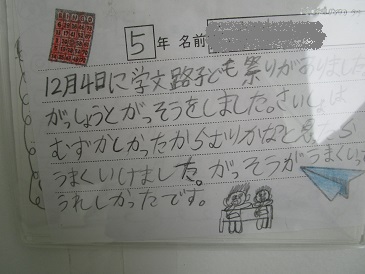 5年 名前
12月4日に学文路子ども祭りがありました
がっしょうとがっそうをしました。さいしょは
むずかしかったからむりかなと思たら
うまくいけました。がっそうがうまくいって
うれしかったです。